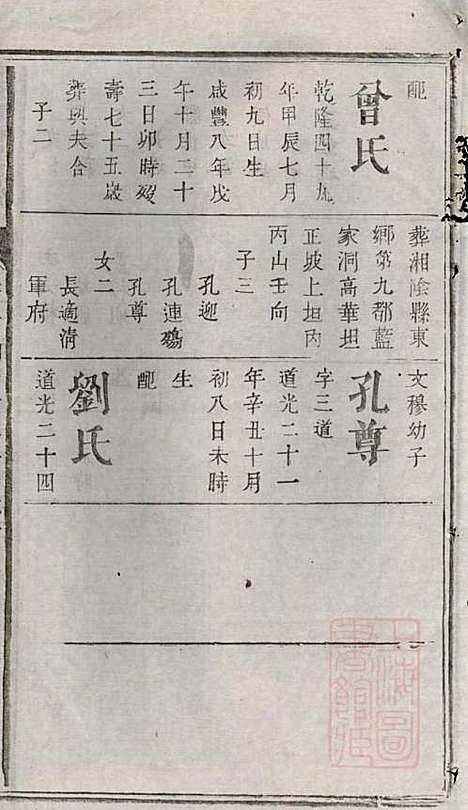 配
曾氏
乾隆四十九
年甲辰七月
初九日生
咸豐八年戊
午十月二十
三日卯時歿
壽七十五歲
葬與夫合
子二
葬湘陰縣東
鄉第九都藍
家洞高華坦
正坡上坦内
丙山壬向
子三
孔迎
孔連殤
孔尊
女二
長適清
軍府
文穆幼子
孔尊
字三道
道光二十一
年辛丑十月
初八日未時
生
配
劉氏
道光二十四
上海圖
書館藏